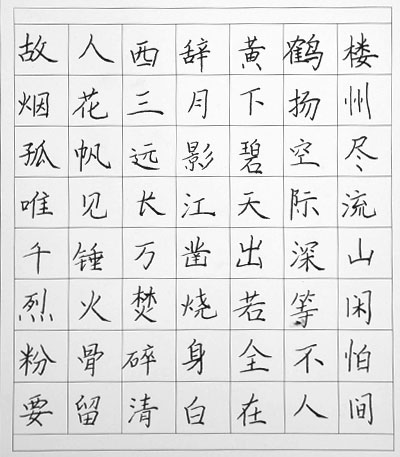 故人西辞黄鹤楼
烟花三月下扬州
孤帆远影碧空尽
唯见长江天际流
千锤万凿出深山
烈火焚烧若等闲
粉骨碎身全不怕
要留清白在人间